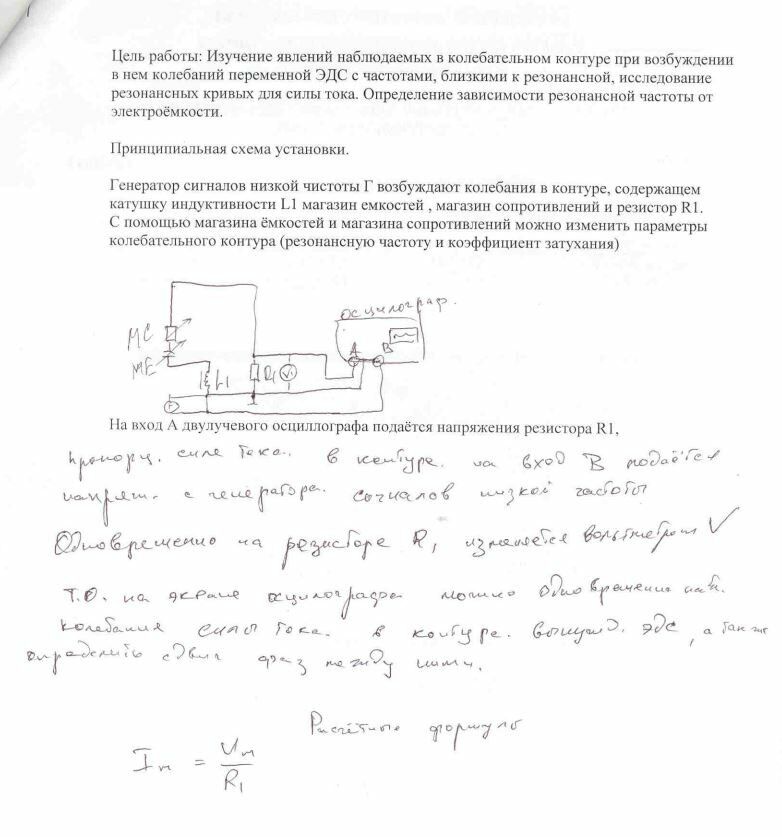 Цель работы: Изучение явлений наблюдаемых в колебательном контуре при возбуждении
в нем колебаний переменной ЭДС с частотами, близкими к резонансной, исследование
резонансных кривых для силы тока. Определение зависимости резонансной частоты от
электроёмкости.
Принципиальная схема установки.
Генератор сигналов низкой чистоты Г возбуждают колебания в контуре, содержащем
катушку индуктивности L1 магазин емкостей , магазин сопротивлений и резистор R1.
С помощью магазина ёмкостей и магазина сопротивлений можно изменить параметры
колебательного контура (резонансную частоту и коэффициент затухания)
осцилограф.
МС
A B
МЕ
L1 R1 V1
Г
На вход А двулучевого осциллографа подаётся напряжения резистора R1,
пропорц. силе тока. в контуре. на вход В подаётся
напряж. с генератора. сигналов низкой частоты
Одновременно на резисторе R1 изменяется вольтметром V
Т.О. на экране осцилографа можно одновременно наб.
колебания силы тока. в контуре. вынужд. ЭДС, а так же
определить сдвиг фаз между ними.
Расчётные формулы
Im = Um / R1